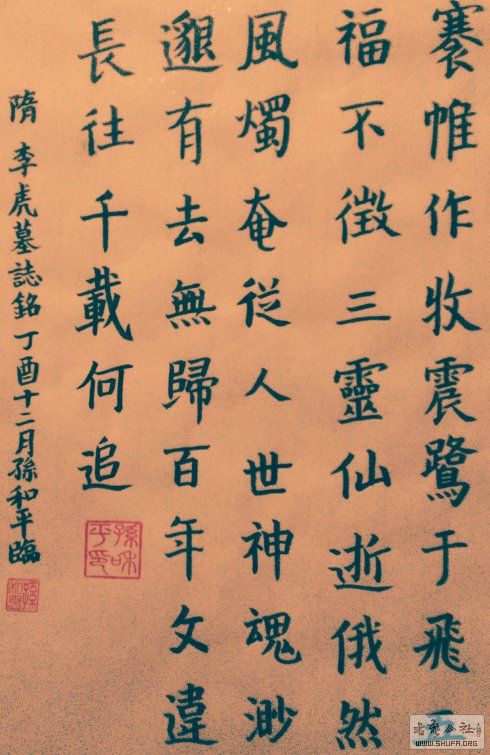 褰帷作牧震鷺于飛五
福不徵三靈仙逝俄然
風燭奄從人世神魂渺
邈有去無歸百年文違
長往千載何追
隋 李虎墓誌銘 丁酉十二月孫和平臨
孫和平印
WWW.SHUFA.ORG